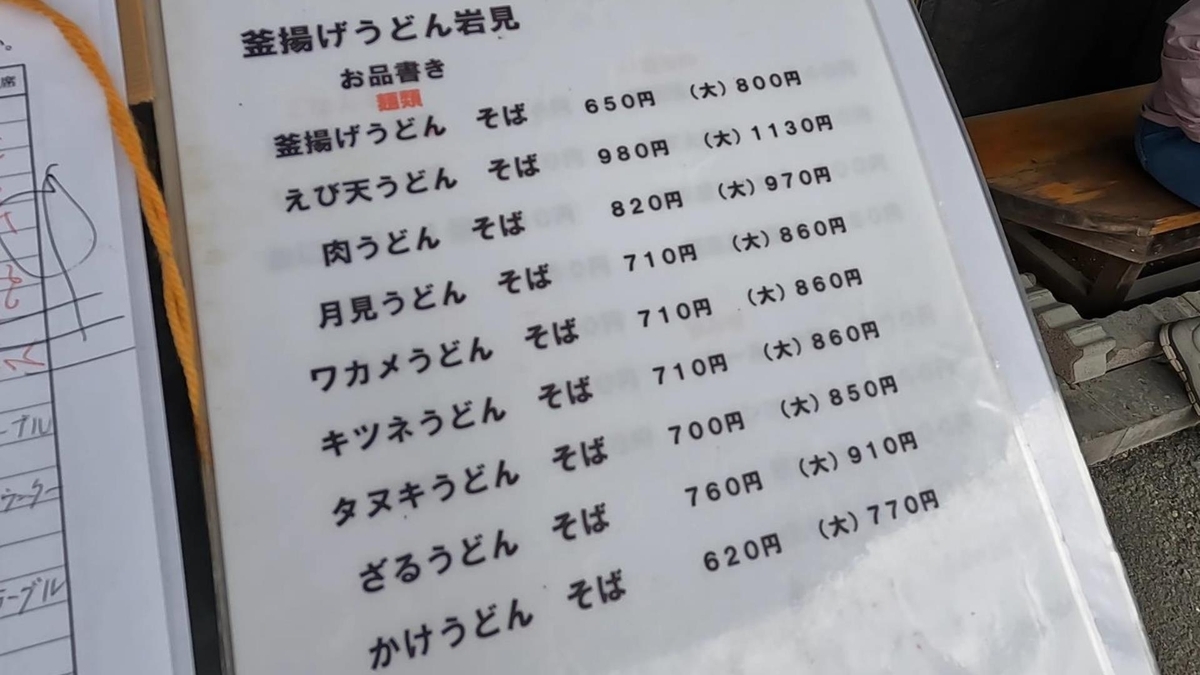 釜揚げうどん岩見
お品書き
麺類
釜揚げうどん そば 650円 (大)800円
えび天うどん そば 980円 (大)1130円
肉うどん そば 820円 (大)970円
月見うどん そば 710円 (大)860円
ワカメうどん そば 710円 (大)860円
キツネうどん そば 710円 (大)860円
タヌキうどん そば 700円 (大)850円
ざるうどん そば 760円 (大)910円
かけうどん そば 620円 (大)770円
席
テーブル